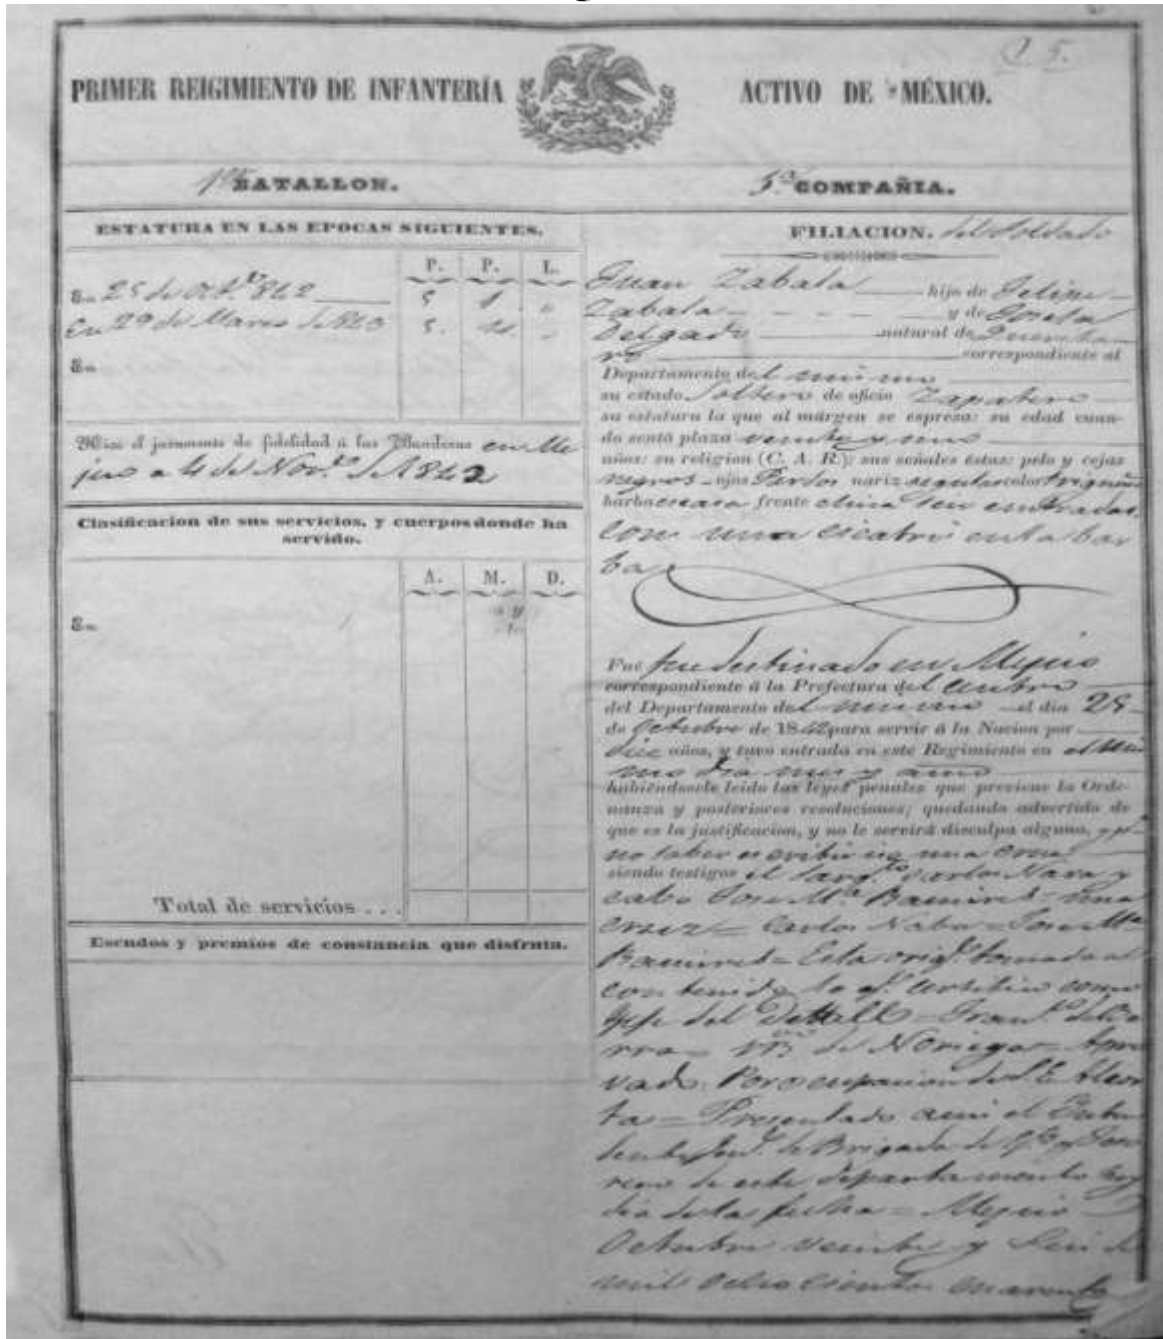 PRIMER REIGIMIENTO DE INFANTERÍA ACTIVO DE MÉXICO.
1er BATALLON. 5.ª COMPAÑIA.
ESTATURA EN LAS EPOCAS SIGUIENTES.
P. P. L.
En 25 de Oct.e 842 5 1 "
En 29 de Marzo de 1843 5.
En
Hizo el juramento de fidelidad á las Banderas en Me
jico a 4 de Nov.e de 1842
Clasificacion de sus servicios, y cuerpos donde ha
servido.
A. M. D.
En
Total de servicios . . .
Escudos y premios de constancia que disfruta.
FILIACION. del Soldado
Juan Zabala hijo de Felipe
Zabala y de Josefa
Delgado natural de Quereta
ro correspondiente al
Departamento del mismo
su estado Soltero de oficio Zapatero
su estatura la que al márgen se espresa: su edad cuan-
do sentó plaza veinte y uno
años: su religion (C. A. R.): sus señales éstas: pelo y cejas
negros ojos Pardos nariz regular color trigueño
barba escasa frente chica con entradas.
con una cicatris en la bar
ba
Fue destinado en Mejico
correspondiente á la Prefectura del Centro
del Departamento del mismo el dia 25
de Octubre de 1842 para servir á la Nacion por
diez años, y tuvo entrada en este Regimiento en el mis
mo dia mes y año
habiéndosele leido las leyes penales que previene la Orde-
nanza y posteriores resoluciones; quedando advertido de
que es la justificacion, y no le servirá disculpa alguna, y p.r
no saber escribir hizo una cruz
siendo testigos el Sarg.to Carlos Nava y
cabo Jose M.a Ramires = una
cruz = Carlos Naba = Jose M.a
Ramires = Esta orig.l tomada al
contenido lo q.e certifico como
Jefe del Detall = Fran.co
de Noriega = Apro
vado. Por ocupacion de S. E. Alcor
ta = Presentado aqui el
de Brigada de
de este departamento hoy
dia de la fecha = Mejico
Octubre veinte y seis de
mil ochocientos cuarenta